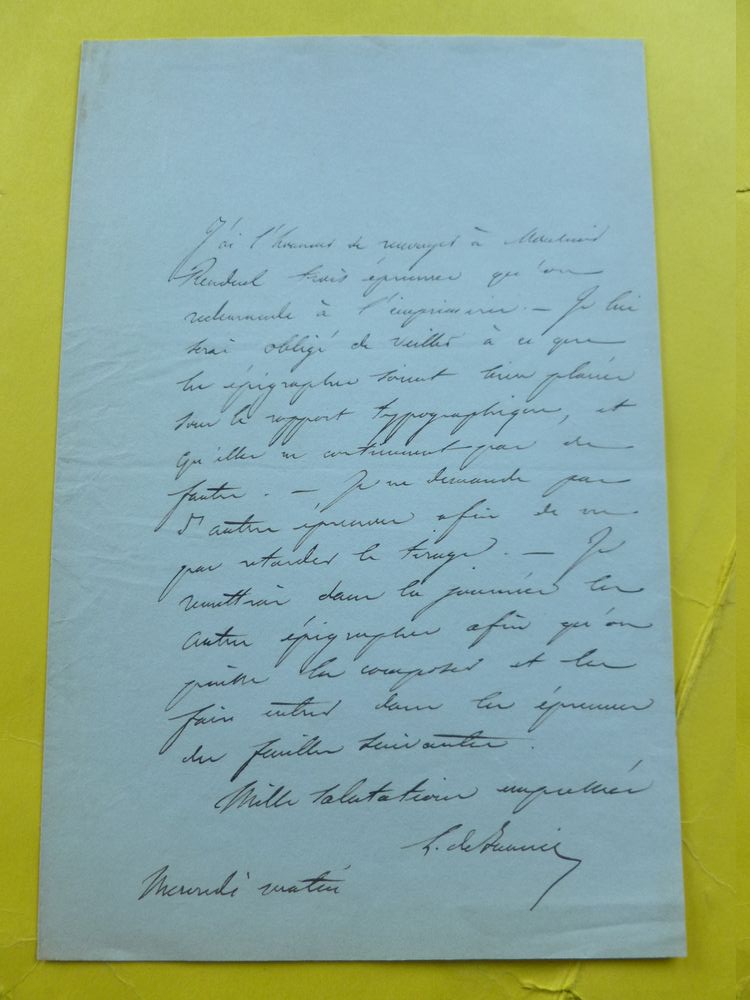 J'ai l'honneur de renvoyer à Monsieur
Renduel trois épreuves qu'on
redemande à l'imprimerie. — Je lui
serai obligé de veiller à ce que
les épigraphes soient bien placées
sous le rapport typographique, et
qu'elles ne contiennent pas de
fautes. — Je ne demande pas
d'autres épreuves afin de ne
pas retarder le tirage. — Je
remettrai dans la journée les
autres épigraphes afin qu'on
puisse les composer et les
faire entrer dans les épreuves
des feuilles suivantes.
Mille salutations empressées
Mercredi matin